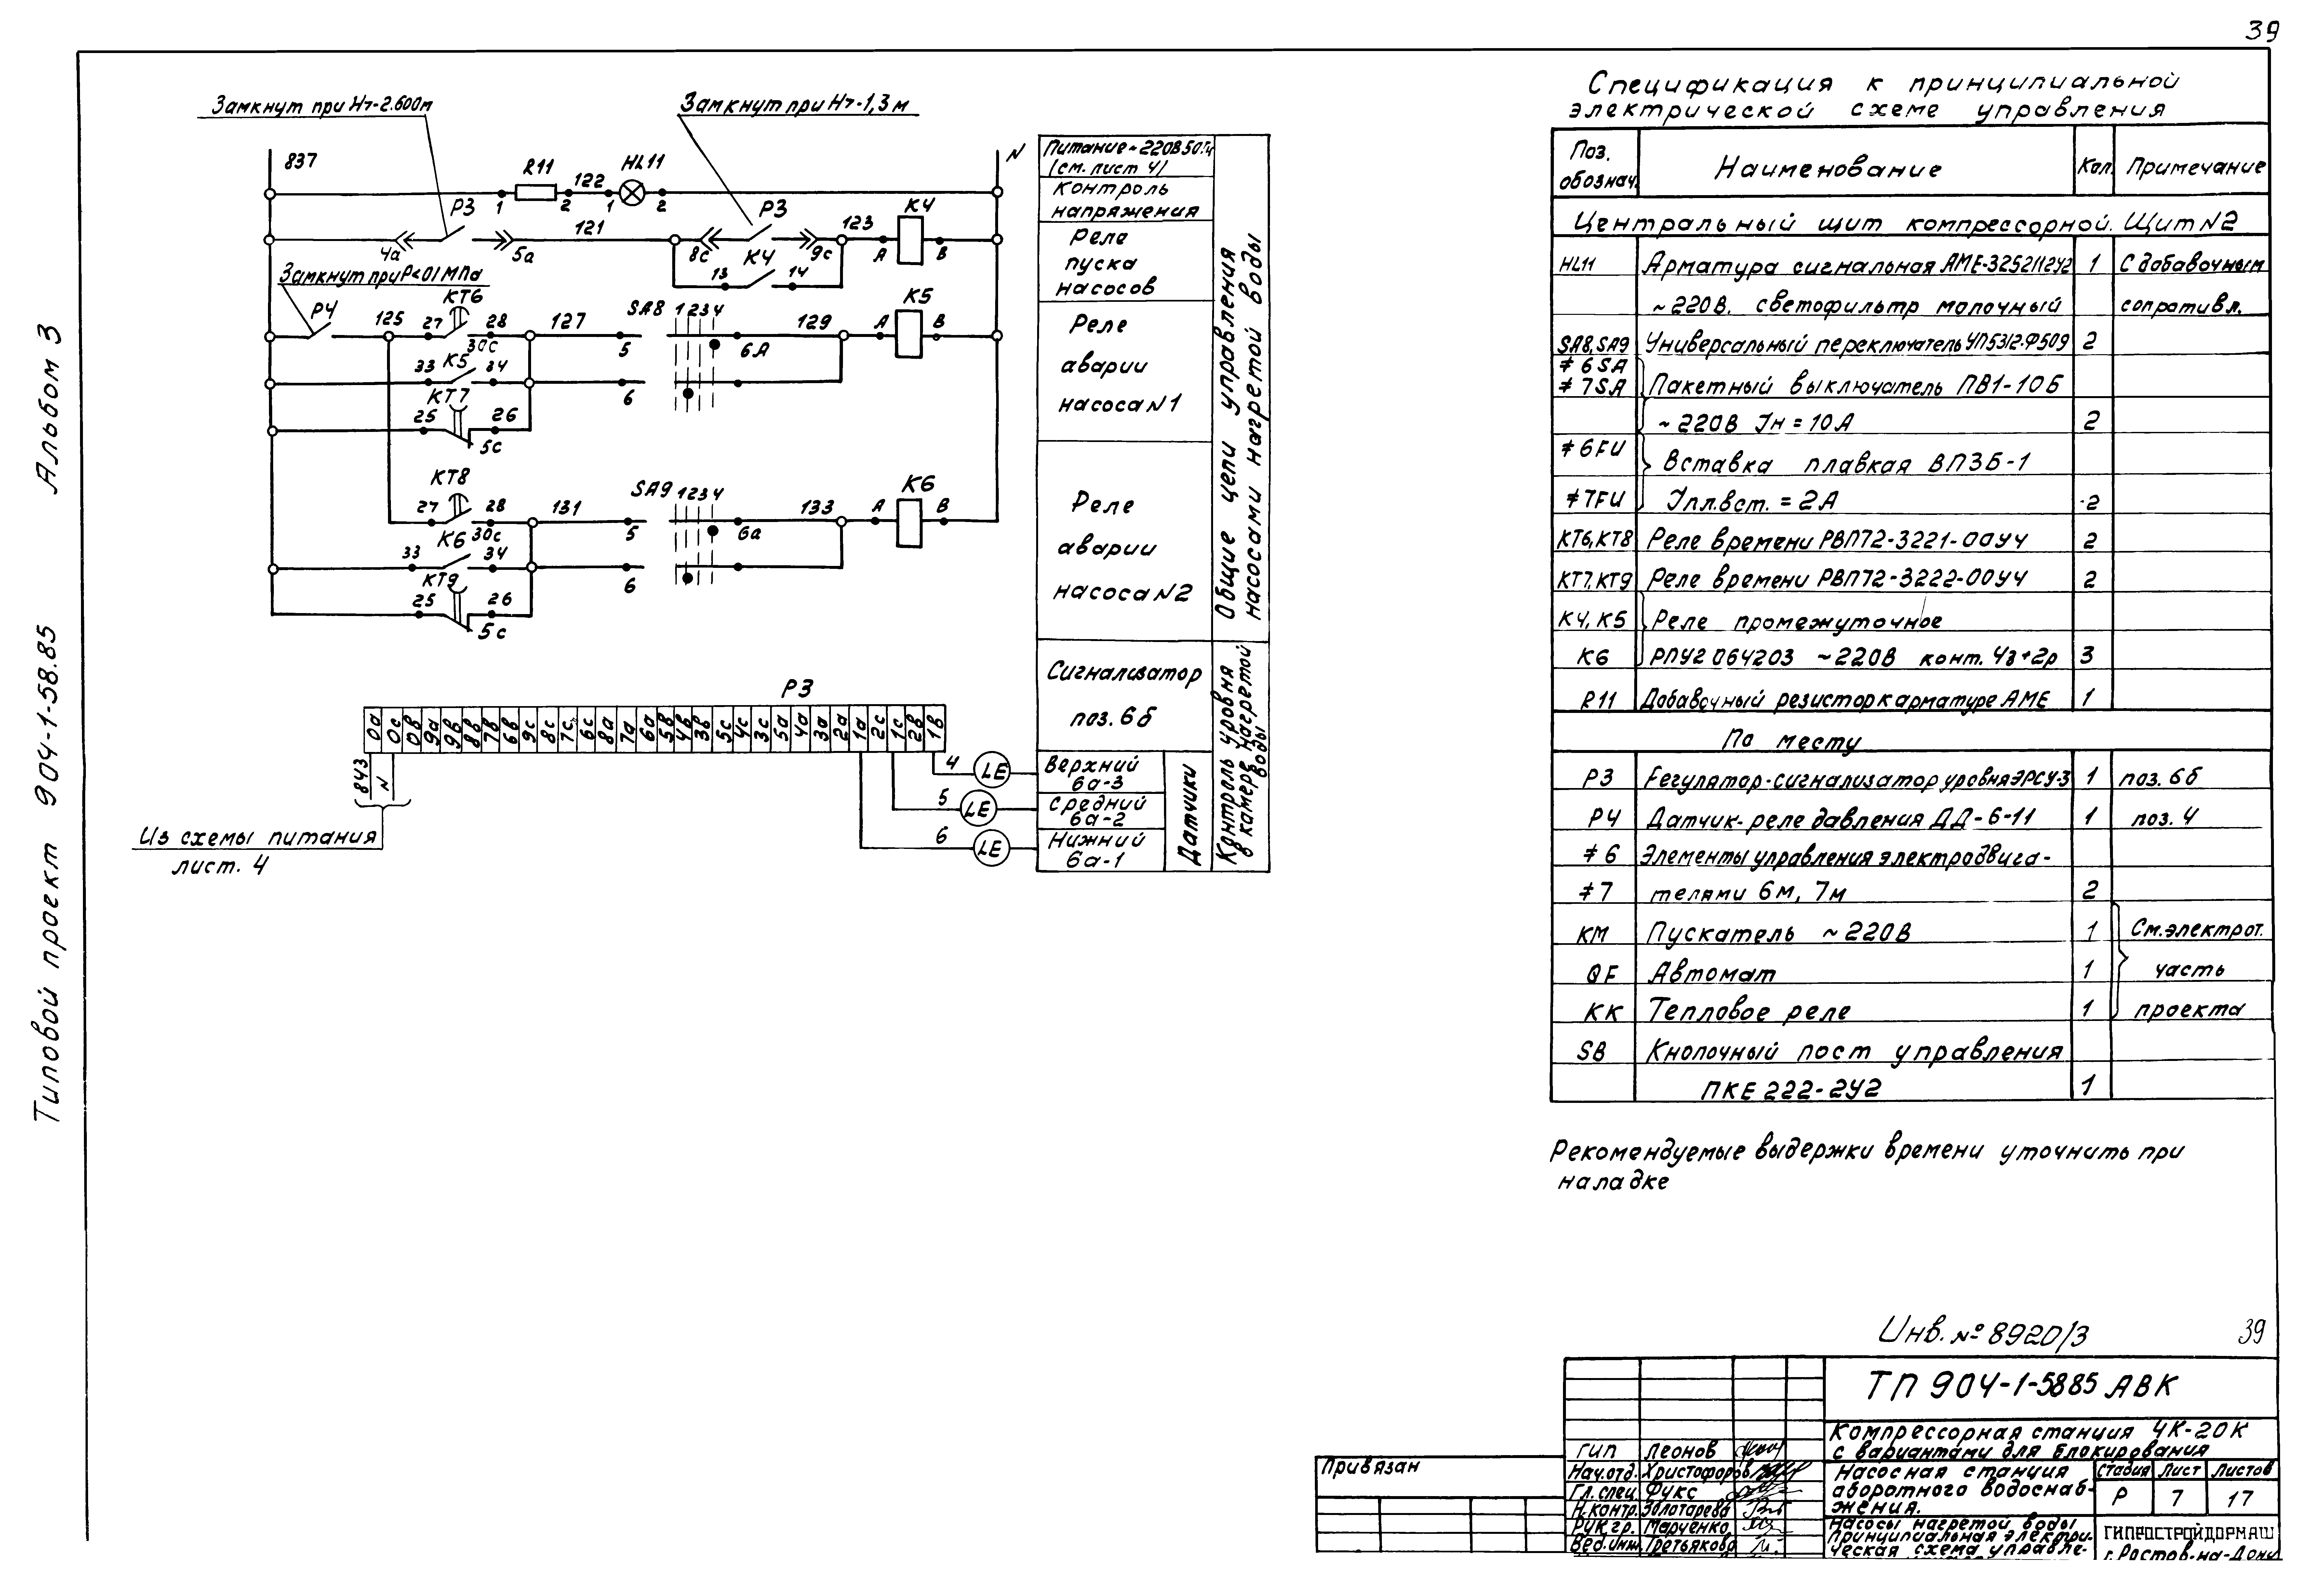 39
Альбом 3
Типовой проект 904-1-58.85
Замкнут при Н>-2.600м
Замкнут при Н>-1,3 м
837
N
R11
122
HL11
1
2
1
2
Р3
Р3
123
К4
4а
5а
121
8с
9с
А
В
К4
13
14
Замкнут при Р<0.1 МПа
Р4
125
КТ6
27
28
30с
127
SA8
1 2 3 4
5
6А
129
К5
А
В
33
К5
34
6
КТ7
25
26
5с
КТ8
27
28
30с
131
SA9
1 2 3 4
5
6а
133
К6
А
В
33
К6
34
6
КТ9
25
26
5с
Питание ~ 220В 50Гц
(см. лист 4)
Контроль
напряжения
Реле
пуска
насосов
Реле
аварии
насоса N1
Реле
аварии
насоса N2
Общие цепи управления
насосами нагретой воды
Сигнализатор
поз. 6б
Верхний
6а-3
Средний
6а-2
Нижний
6а-1
Датчики
Контроль уровня
в камере нагретой
воды
Р3
0а 0с 0в 9а 9в 8в 7в 6в 9с 8с 7с 6с 8а 7а 6а 5в 4в 3в 5с 4с 3с 5а 4а 3а 2а 1а 2с 1с 2в 1в
843
N
4
LE
5
LE
6
LE
Из схемы питания
лист. 4
Спецификация к принципиальной
электрической схеме управления
Поз. обознач. Наименование Кол. Примечание
Центральный щит компрессорной. Щит N2
HL11 Арматура сигнальная АМЕ-325211242 1 С добавочным
~ 220В. светофильтр молочный сопротивл.
SA8, SA9 Универсальный переключатель УП5312-Ф509 2
≠ 6SA
≠ 7SA Пакетный выключатель ПВ1-10Б
~ 220В Iн = 10А 2
≠ 6FU Вставка плавкая ВП3Б-1
≠ 7FU Iпл.вст. = 2А 2
КТ6, КТ8 Реле времени РВП72-3221-00У4 2
КТ7, КТ9 Реле времени РВП72-3222-00У4 2
К4, К5 Реле промежуточное
К6 РПУ2 064203 ~220В конт. 4з+2р 3
R11 Добавочный резистор к арматуре АМЕ 1
По месту
Р3 Регулятор-сигнализатор уровня ЭРСУ-3 1 поз. 6б
Р4 Датчик-реле давления ДД-6-11 1 поз. 4
≠ 6 Элементы управления электродвига-
≠ 7 телями 6м, 7м 2
КМ Пускатель ~ 220В 1 См. электрот.
QF Автомат 1 часть
КК Тепловое реле 1 проекта
SB Кнопочный пост управления
ПКЕ 222-2У2 1
Рекомендуемые выдержки времени уточнить при
наладке
Инв. № 8920/3
39
ТП 904-1-5885 АВК
Компрессорная станция 4К-20К
с вариантами для блокирования
Насосная станция
оборотного водоснаб-
жения.
Стадия Лист Листов
Р 7 17
Насосы нагретой воды
Принципиальная электри-
ческая схема управле-
ГИПРОСТРОЙДОРМАШ
г. Ростов-на-Дону
Привязан
ГИП Леонов
Нач.отд. Христофоров
Гл. спец. Фукс
Н.контр. Золотарева
Рук.гр. Марченко
Вед.инж. Третьякова